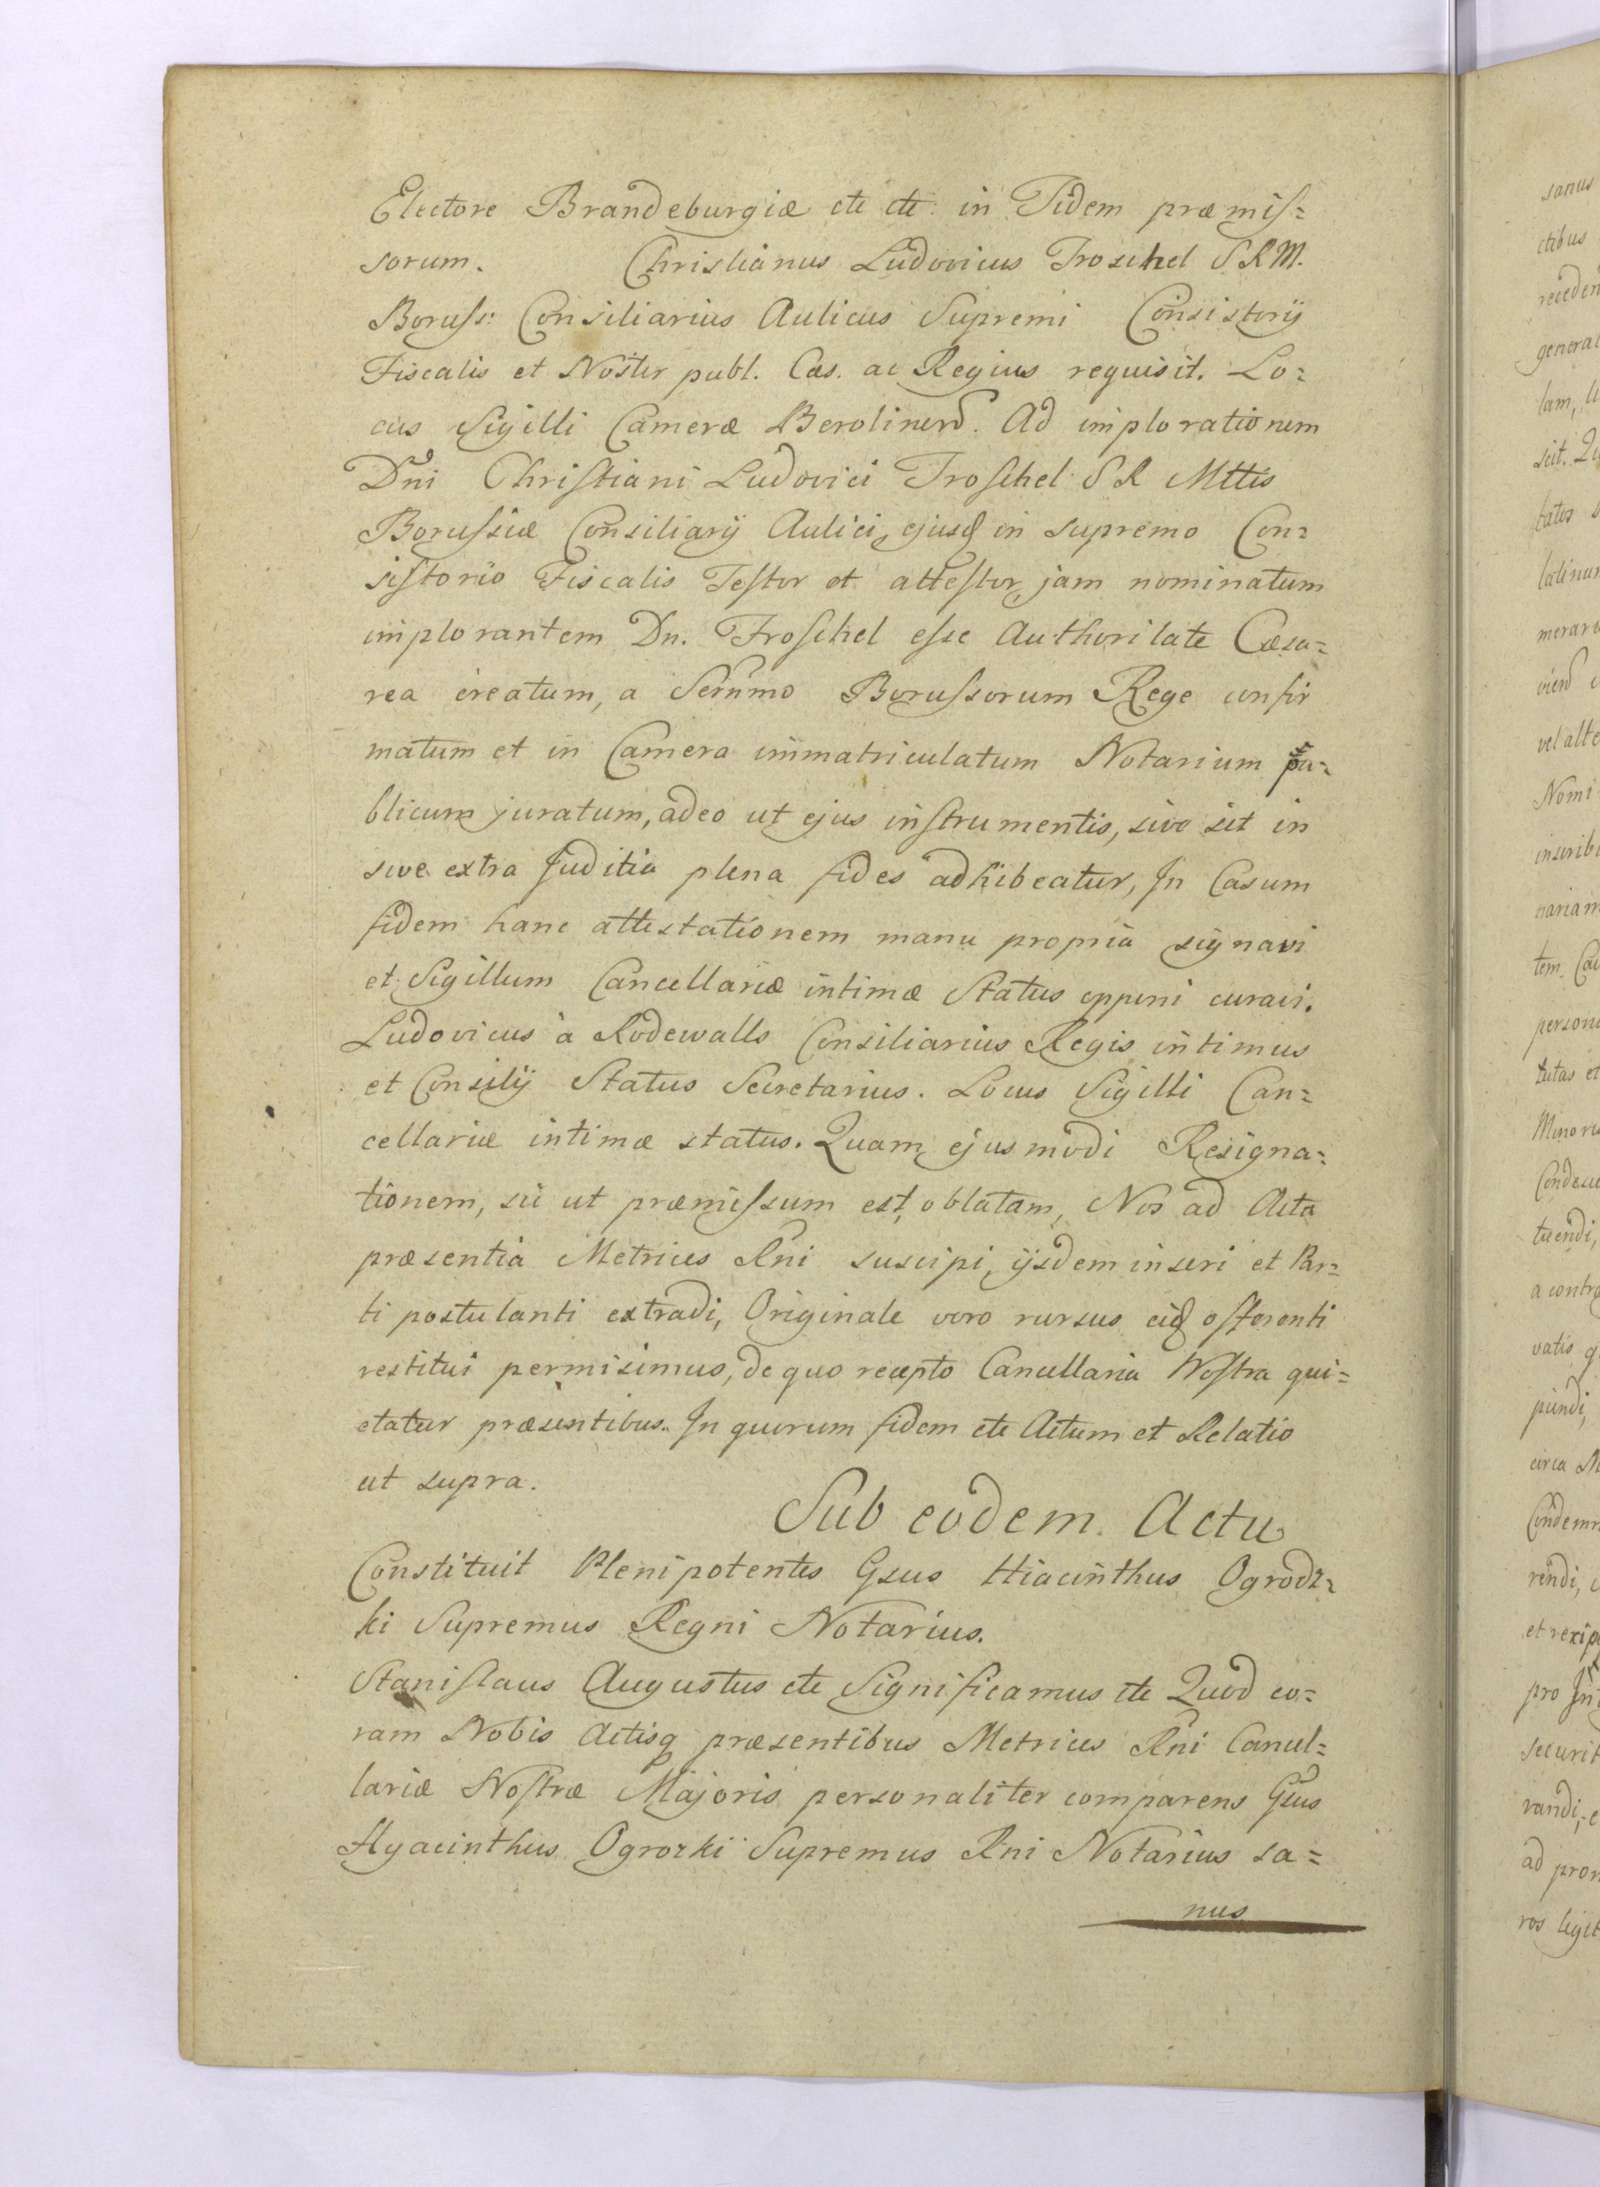 Electore Brandeburgiæ etc etc: in Fidem præmis=
sorum. Christianus Ludovicus Troschel S R M.
Boruss: Consiliarius Aulicus Supremi Consistorij
Fiscalis et Noster publ. Cæs. ac Regius requisit. Lo=
cus Sigilli Cameræ Berolinens. Ad implorationem
Dni Christiani Ludovici Troschel S R Mttis
Borussiæ Consiliarij Aulici, ejusq in supremo Con=
sistorio Fiscalis Testor et attestor, jam nominatum
implorantem Dn. Froschel esse Authoritate Cæsa=
rea creatum, a Sernmo Borussorum Rege confir
matum et in Camera immatriculatum Notarium pu=
blicum juratum, adeo ut ejus instrumentis, sive sit in
sive extra Juditia plena fides adhibeatur, In Casum
fidem hanc attestationem manu propria signavi
et Sigillum Cancellariæ intimæ Status apponi curavi.
Ludovicus à Rodewalls Consiliarius Regis intimus
et Consilij Status Secretarius. Locus Sigilli Can=
cellariæ intimæ status. Quam ejusmodi Resigna=
tionem, sic ut præmissum est, oblatam, Nos ad Acta
præsentia Metrices Rni suscipi, ijsdem inseri et Par=
ti postulanti extradi, Originale vero rursus eidq offerenti
restitui permisimus, de quo recepto Cancellaria Nostra qui=
etatur præsentibus. In quorum fidem etc Actum et Relatio
ut supra.
Sub eodem. Actu
Constituit Plenipotentes Gsus Hiacinthus Ogrodz=
ki Supremus Regni Notarius.
Stanislaus Augustus etc Significamus etc Quod co=
ram Nobis Actisq præsentibus Metrices Rni Cancel=
lariæ Nostræ Majoris personaliter comparens Gsus
Hyacinthus Ogrozki Supremus Rni Notarius sa=
nus